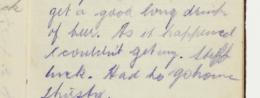 get a good long drink
of beer. As it happened
I couldn't get any. Stiff
luck. Had to go home
thirsty.